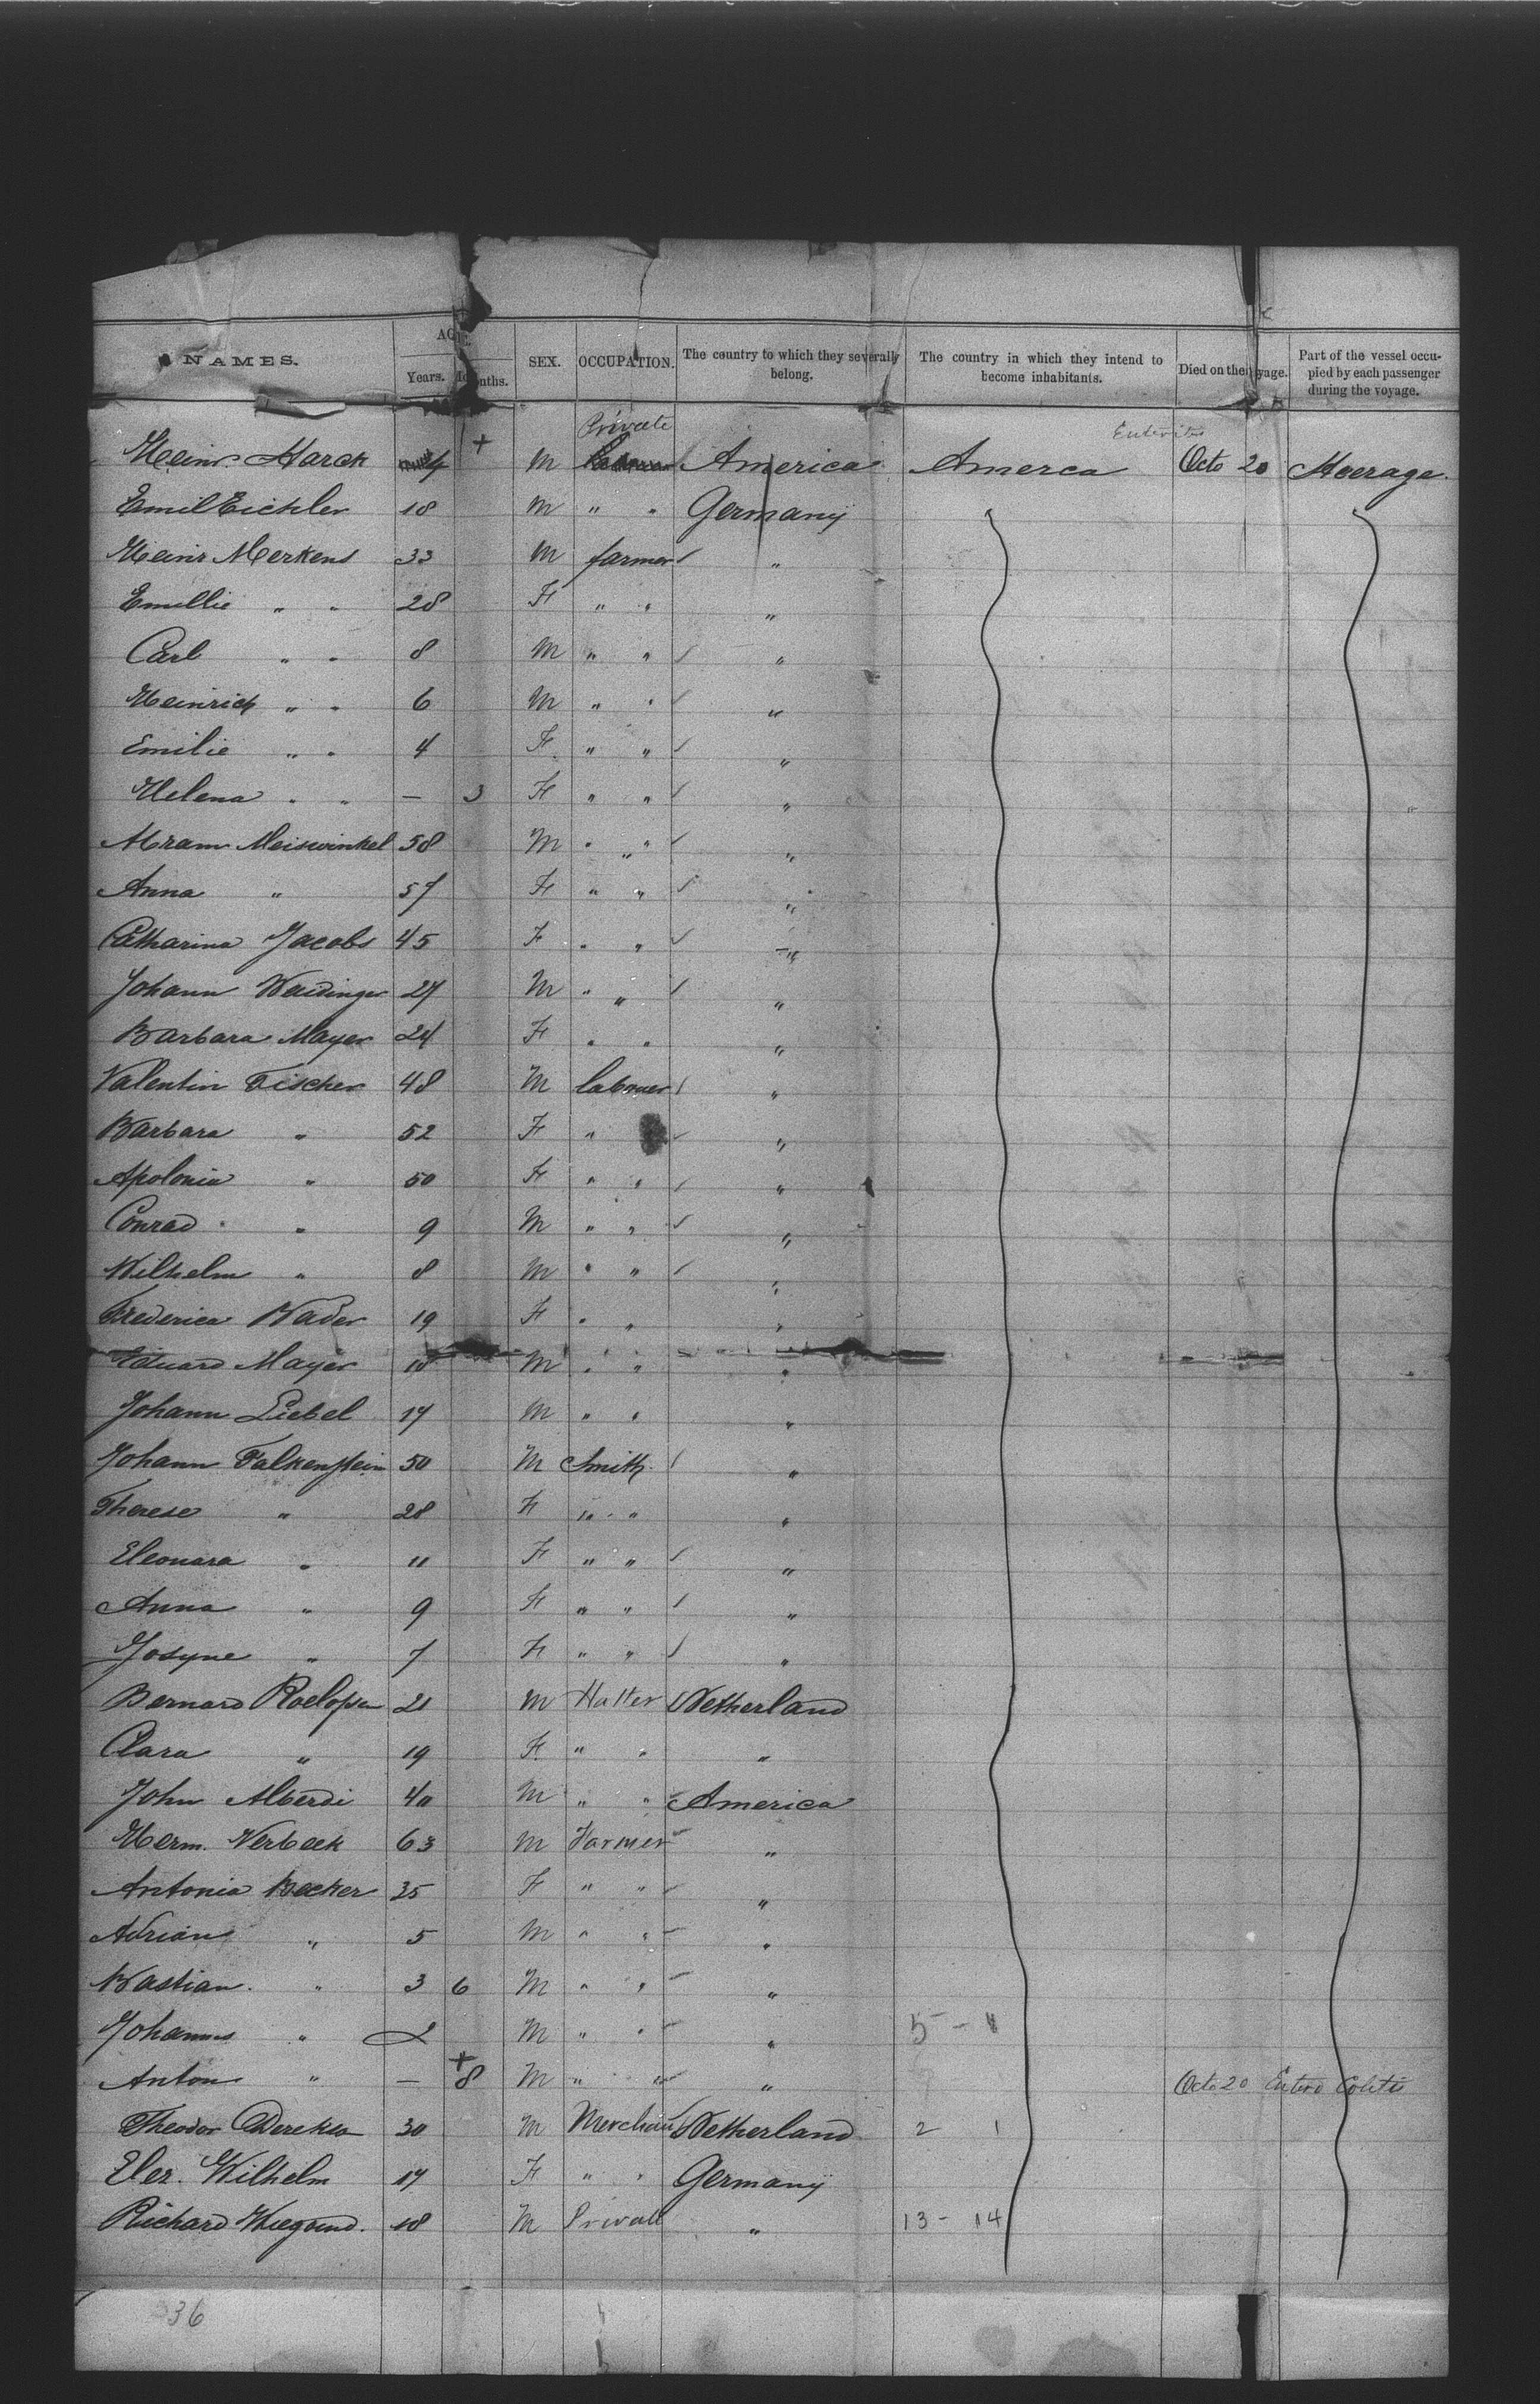 NAMES. AGE. Years. Months. SEX. OCCUPATION. The country to which they severally belong. The country in which they intend to become inhabitants. Died on the voyage. Part of the vessel occupied by each passenger during the voyage.
Private Enteritis
Heinr. Harck 4 + M America Amerca Octo 20 Steerage.
Emil Eichler 18 M " " Germany
Heinr Merkens 33 M farmer "
Emillie " " 28 F " " "
Carl " " 8 M " " "
Heinrich " " 6 M " " "
Emilie " " 4 F " " "
Helena " " — 3 F " " "
Abram Meiswinkel 58 M " " "
Anna " 57 F " " "
Catharina Jacobs 45 F " " "
Johann Waidinger 27 M " " "
Barbara Mayer 24 F " " "
Valentin Fischer 48 M labouer "
Barbara " 52 F " "
Apolonia " 50 F " " "
Conrad " 9 M " " "
Wilhelm " 8 M " " "
Frederica Nader 19 F " " "
Eduard Mayer 18 M " " "
Johann Liebel 17 M " " "
Johann Falkenstein 50 M Smith "
Therese " 28 F " " "
Eleonara " 11 F " " "
Anna " 9 F " " "
Josyne " 7 F " " "
Bernard Roelofsen 21 M Hatter Netherland
Clara " 19 F " " "
John Alberdi 40 M " " America
Herm. Verbeek 63 M Farmer "
Antonia Becker 35 F " " "
Adrian " 5 M " " "
Bastian " 3 6 M " " "
Johannes " 2 M " " " 5 - 1
Anton " — + 8 M " " " Octo 20 Entero Colitis
Theodor Derckson 30 M Merchant Netherland 2 1
Eler. Wilhelm 17 F " " Germany
Richard Wiegand. 18 M Privat " 13 - 14
36